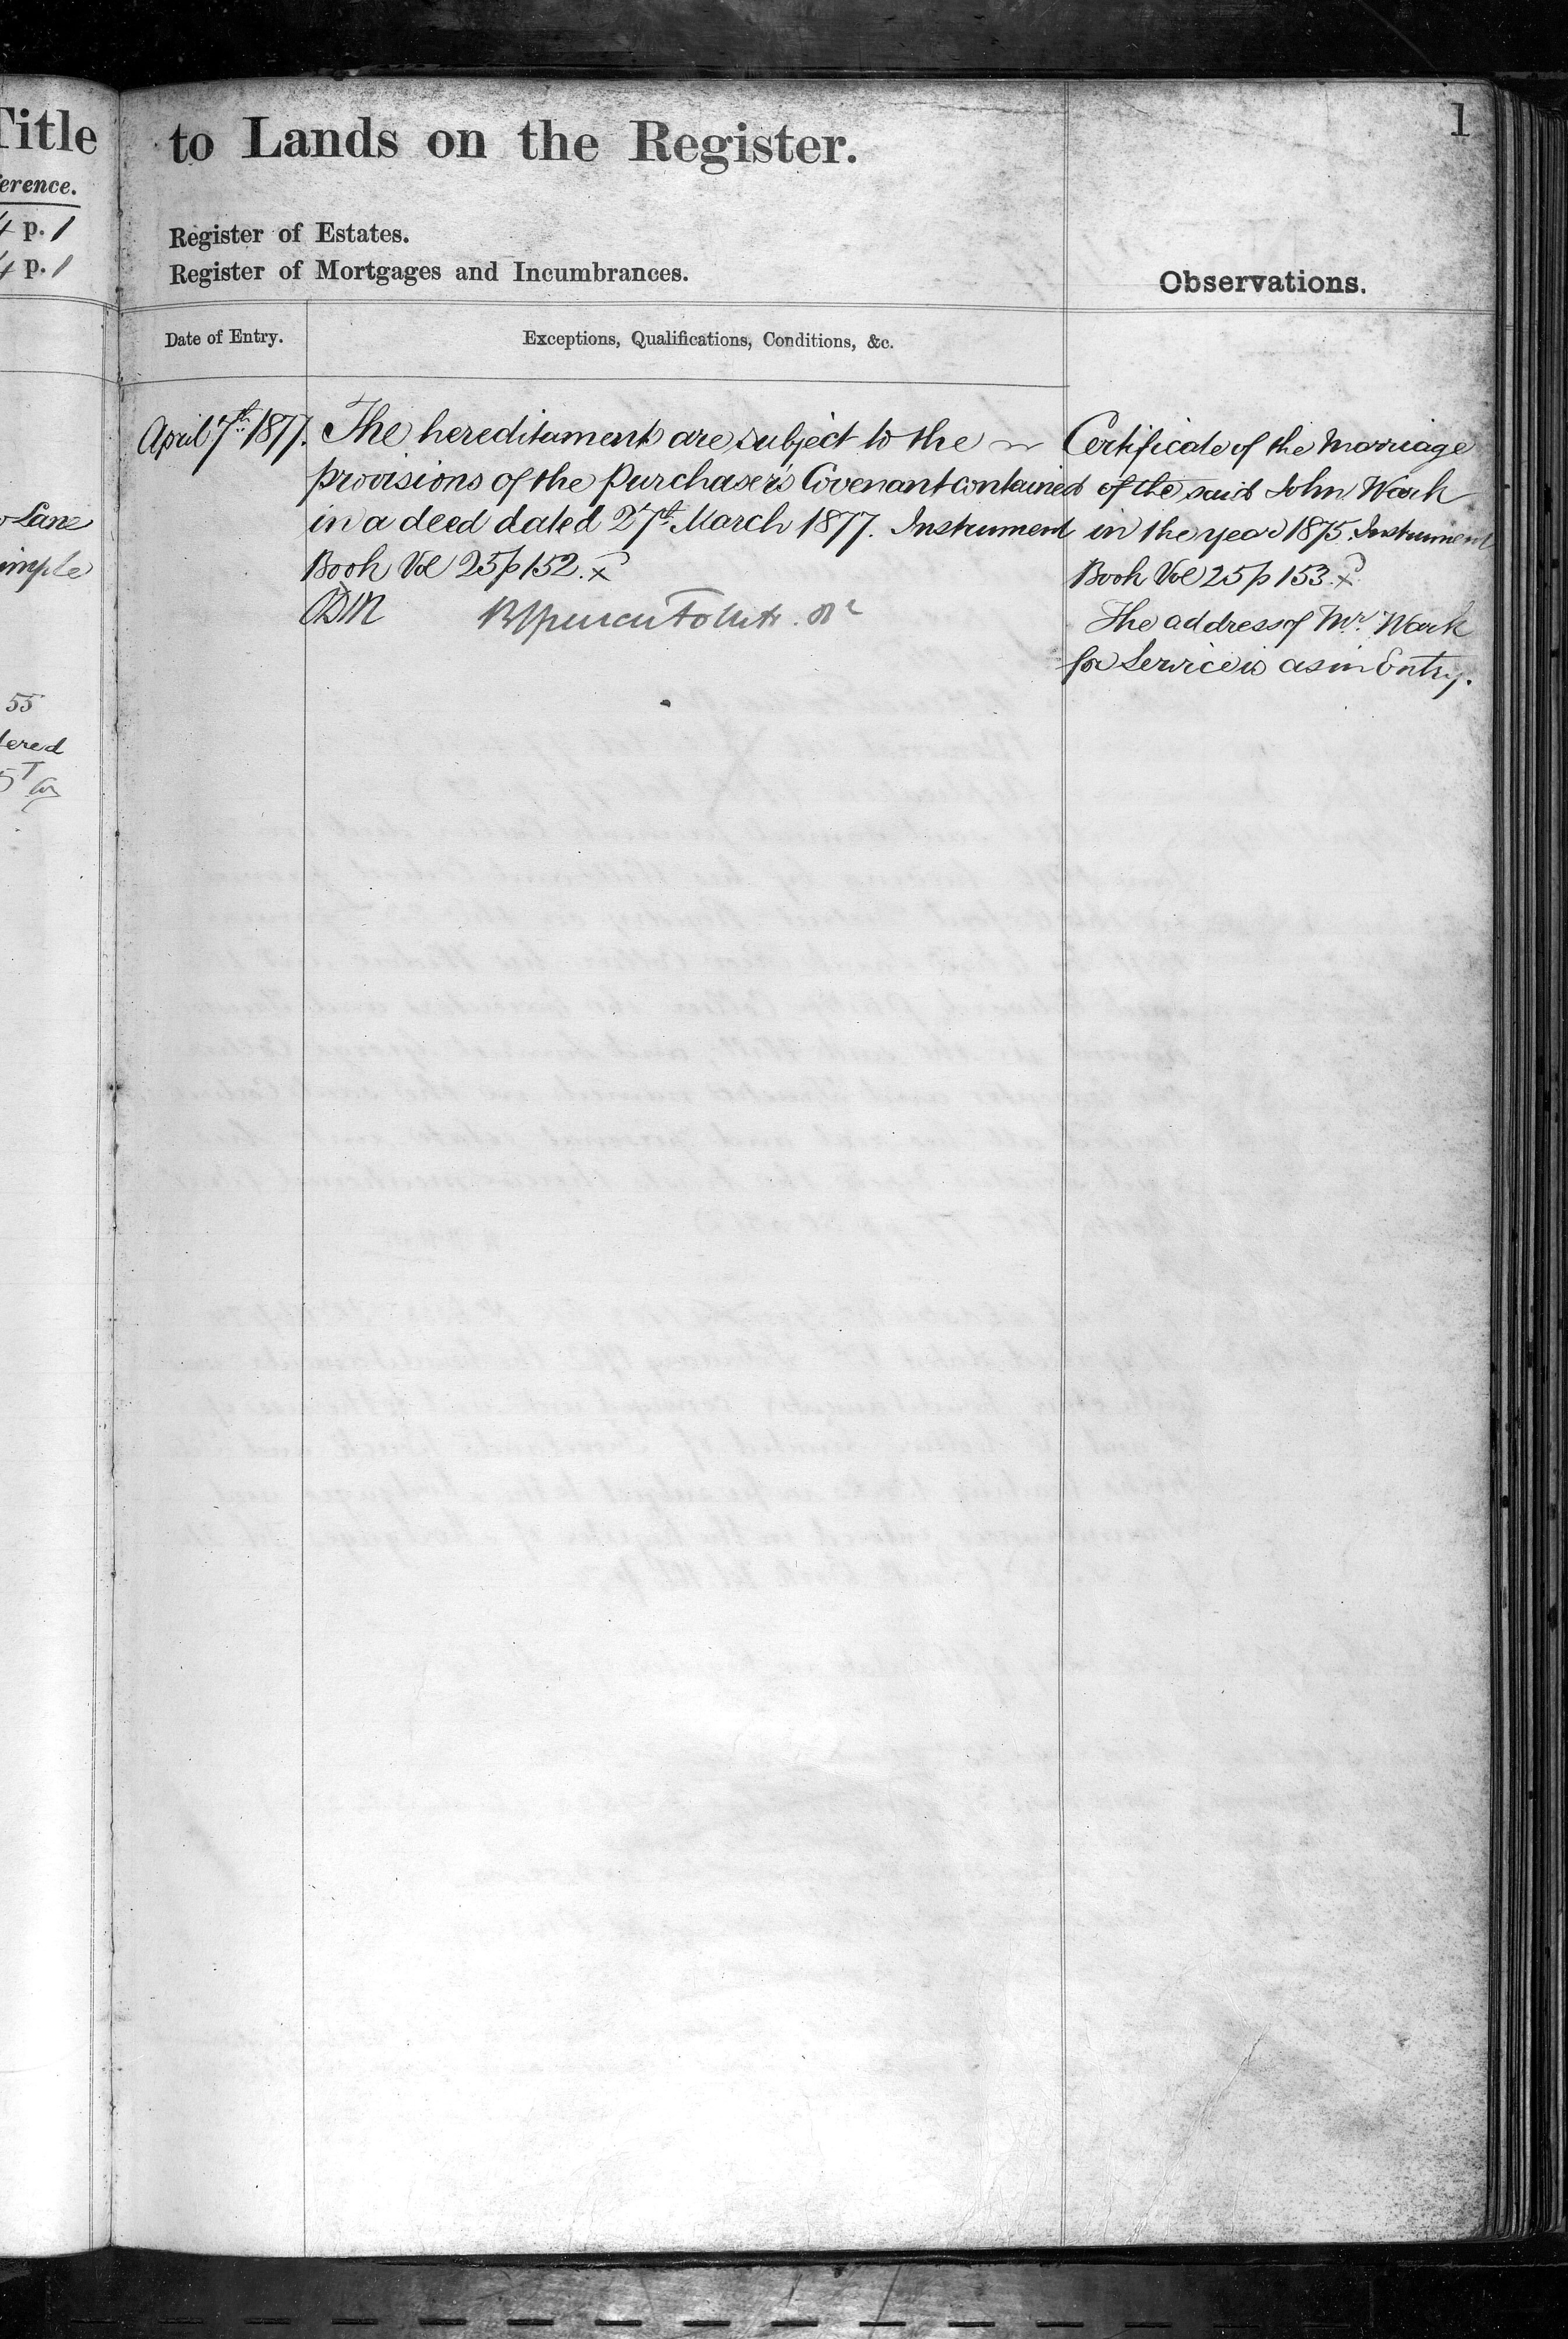 Title
erence.
4 p. 1
4 p. 1
Lane
imple
55
tered
1
to Lands on the Register.
Register of Estates.
Register of Mortgages and Incumbrances.
Observations.
Date of Entry.
Exceptions, Qualifications, Conditions, &c.
April 7th 1877.
The hereditaments are subject to the
provisions of the Purchaser's Covenant contained
in a deed dated 27th March 1877. Instrument
Book Vol 25 p 152. x
Certificate of the Marriage
of the said John Wark
in the year 1875. Instrument
Book Vol 25 p 153. x
The address of Mr. Wark
for Service is as in Entry.